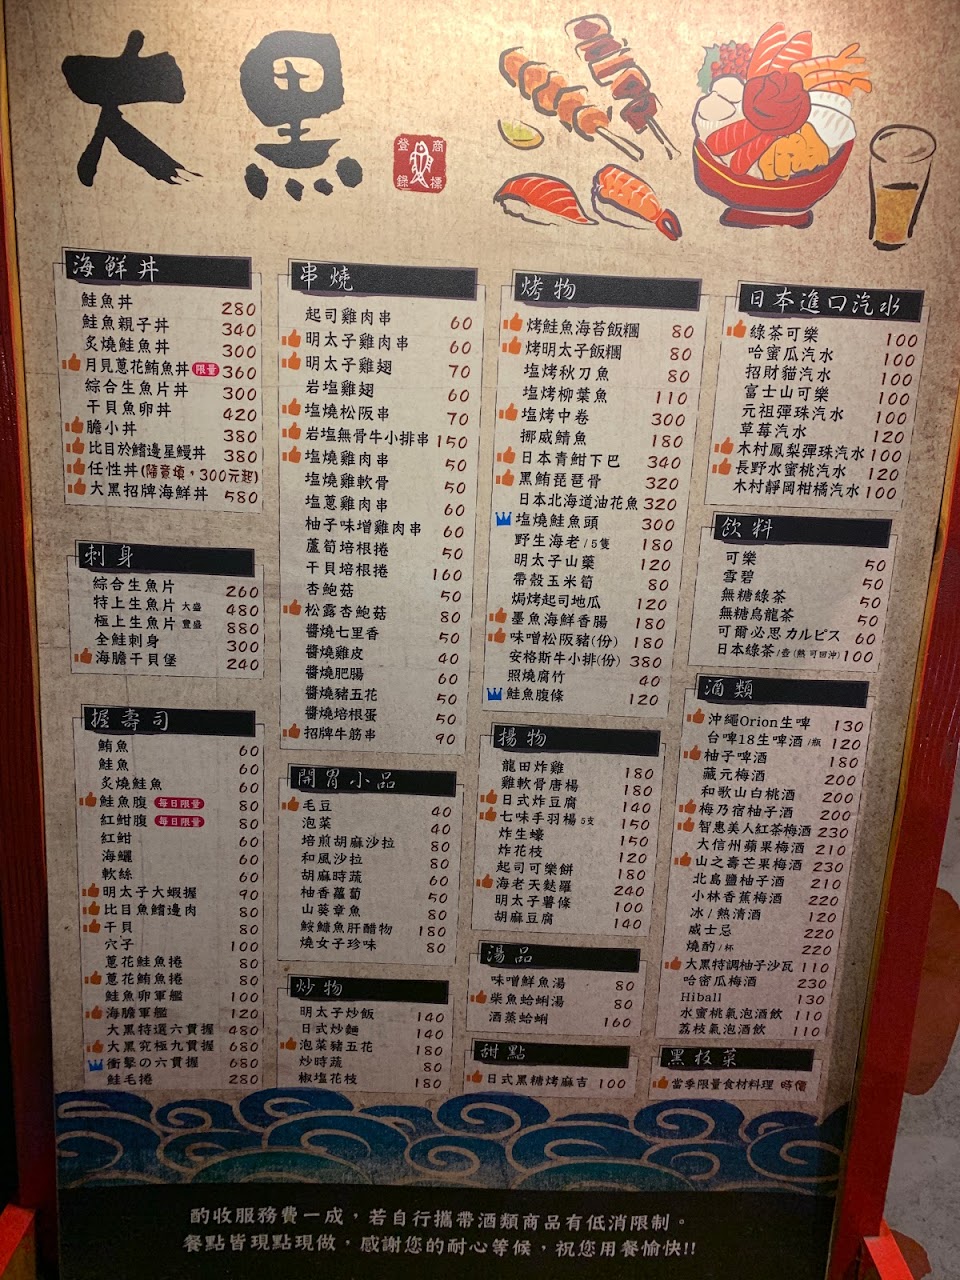 大黑
商標登錄
海鮮丼
鮭魚丼 280
鮭魚親子丼 340
炙燒鮭魚丼 300
月見蔥花鮪魚丼 限量 360
綜合生魚片丼 300
干貝魚卵丼 420
膽小丼 380
比目於鰭邊星鰻丼 380
任性丼(隨意填,300元起)
大黑招牌海鮮丼 580
刺身
綜合生魚片 260
特上生魚片 大盛 480
極上生魚片 豐盛 880
全鮭刺身 300
海膽干貝堡 240
握壽司
鮪魚 60
鮭魚 60
炙燒鮭魚 60
鮭魚腹 每日限量 80
紅魽腹 每日限量 80
紅魽 60
海鱺 60
軟絲 60
明太子大蝦握 90
比目魚鰭邊肉 80
干貝 80
穴子 100
蔥花鮭魚捲 80
蔥花鮪魚捲 80
鮭魚卵軍艦 100
海膽軍艦 120
大黑特選六貫握 480
大黑究極九貫握 680
衝擊の六貫握 680
鮭毛捲 280
串燒
起司雞肉串 60
明太子雞肉串 60
明太子雞翅 70
岩塩雞翅 60
塩燒松阪串 70
岩塩無骨牛小排串 150
塩燒雞肉串 50
塩燒雞軟骨 50
塩蔥雞肉串 60
柚子味增雞肉串 60
蘆筍培根捲 50
干貝培根捲 160
杏鮑菇 50
松露杏鮑菇 80
醬燒七里香 50
醬燒雞皮 40
醬燒肥腸 60
醬燒豬五花 50
醬燒培根蛋 50
招牌牛筋串 90
開胃小品
毛豆 40
泡菜 40
培煎胡麻沙拉 80
和風沙拉 80
胡麻時蔬 60
柚香蘿蔔 50
山葵章魚 80
鮟鱇魚肝醋物 180
燒女子珍味 80
炒物
明太子炒飯 140
日式炒麵 140
泡菜豬五花 180
炒時蔬 80
椒塩花枝 180
烤物
烤鮭魚海苔飯糰 80
烤明太子飯糰 80
塩烤秋刀魚 80
塩烤柳葉魚 110
塩烤中卷 300
挪威鯖魚 180
日本青魽下巴 340
黑鮪琵琶骨 320
日本北海道油花魚 320
塩燒鮭魚頭 300
野生海老/5隻 180
明太子山藥 120
帶殼玉米筍 80
焗烤起司地瓜 120
墨魚海鮮香腸 180
味噌松阪豬(份) 180
安格斯牛小排(份) 380
照燒腐竹 40
鮭魚腹條 120
揚物
龍田炸雞 180
雞軟骨唐楊 180
日式炸豆腐 140
七味手羽楊 5支 150
炸生蠔 150
炸花枝 120
起司可樂餅 180
海老天麩羅 240
明太子薯條 100
胡麻豆腐 140
湯品
味噌鮮魚湯 80
柴魚蛤蜊湯 80
酒蒸蛤蜊 160
甜點
日式黑糖烤麻吉 100
日本進口汽水
綠茶可樂 100
哈蜜瓜汽水 100
招財貓汽水 100
富士山可樂 100
元祖彈珠汽水 100
草莓汽水 120
木村鳳梨彈珠汽水 100
長野水蜜桃汽水 120
木村靜岡柑橘汽水 100
飲料
可樂 50
雪碧 50
無糖綠茶 50
無糖烏龍茶 50
可爾必思カルピス 60
日本綠茶/壺(熱 可回沖) 100
酒類
沖繩Orion生啤 130
台啤18生啤酒/瓶 120
柚子啤酒 180
藏元梅酒 200
和歌山白桃酒 200
梅乃宿柚子酒 200
智惠美人紅茶梅酒 230
大信州蘋果梅酒 210
山之壽芒果梅酒 230
北島鹽柚子酒 210
小林香蕉梅酒 220
冰/熱清酒 120
威士忌 220
燒酌/杯 220
大黑特調柚子沙瓦 110
哈密瓜梅酒 230
Hiball 130
水蜜桃氣泡酒飲 110
荔枝氣泡酒飲 110
黑板菜
當季限量食材料理 時價
酌收服務費一成，若自行攜帶酒類商品有低消限制。
餐點皆現點現做，感謝您的耐心等候，祝您用餐愉快!!